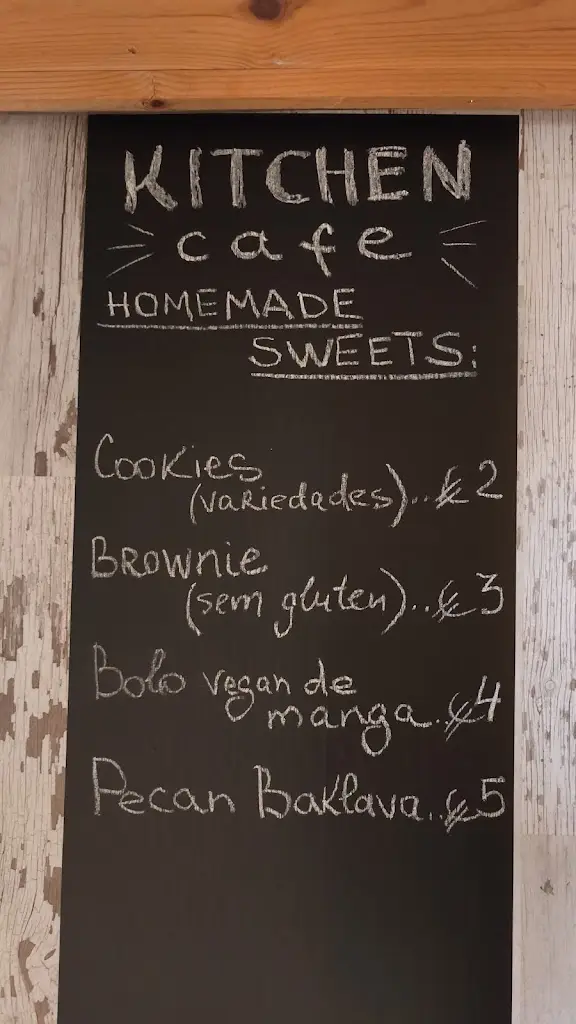 KITCHEN
cafe
HOMEMADE
SWEETS:
Cookies
(variedades)..€2
Brownie
(sem gluten)..€3
Bolo vegan de
manga..€4
Pecan Baklava..€5